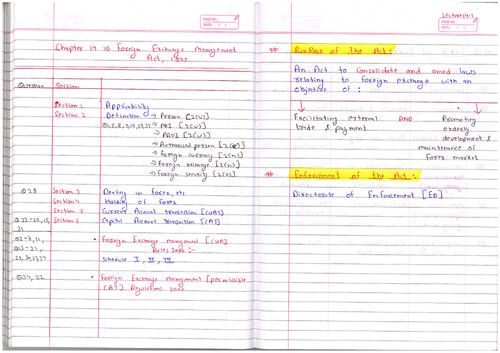 Chapter 14 ⇒ Foreign Exchange Management
Act, 1999
Question Section
Section 1 Applicability
Section 2 Defination → Person [2(u)]
→ PRI [2(v)]
→ PROI [2(w)]
→ Authourised person [2(c)]
→ Foreign currency [2(m)]
→ Foreign exchange [2(n)]
→ Foreign security [2(o)]
Q28 Section 3 Dealing in forex, etc
Section 4 Holding of forex
Section 5 Current Account transaction [CUAT]
Section 6 Capital Account transaction [CAT]
• Foreign Exchange management [CUAT]
Rules 2000 :-
Schedule I, II, III
• Foreign Exchange management [permissible
CAT] Regulations 2000
PAGE NO.:
DATE: / /
PAGE NO.:
DATE: / /
# Purpose of the Act:
An Act to Consolidate and amed laws
relating to foreign exchange with an
objective of :
Facilitating external AND Promoting
trade & payment orderly
development &
maintenance of
forex market
# Enforcement of the Act:
Directorate of Enforcement [ED]